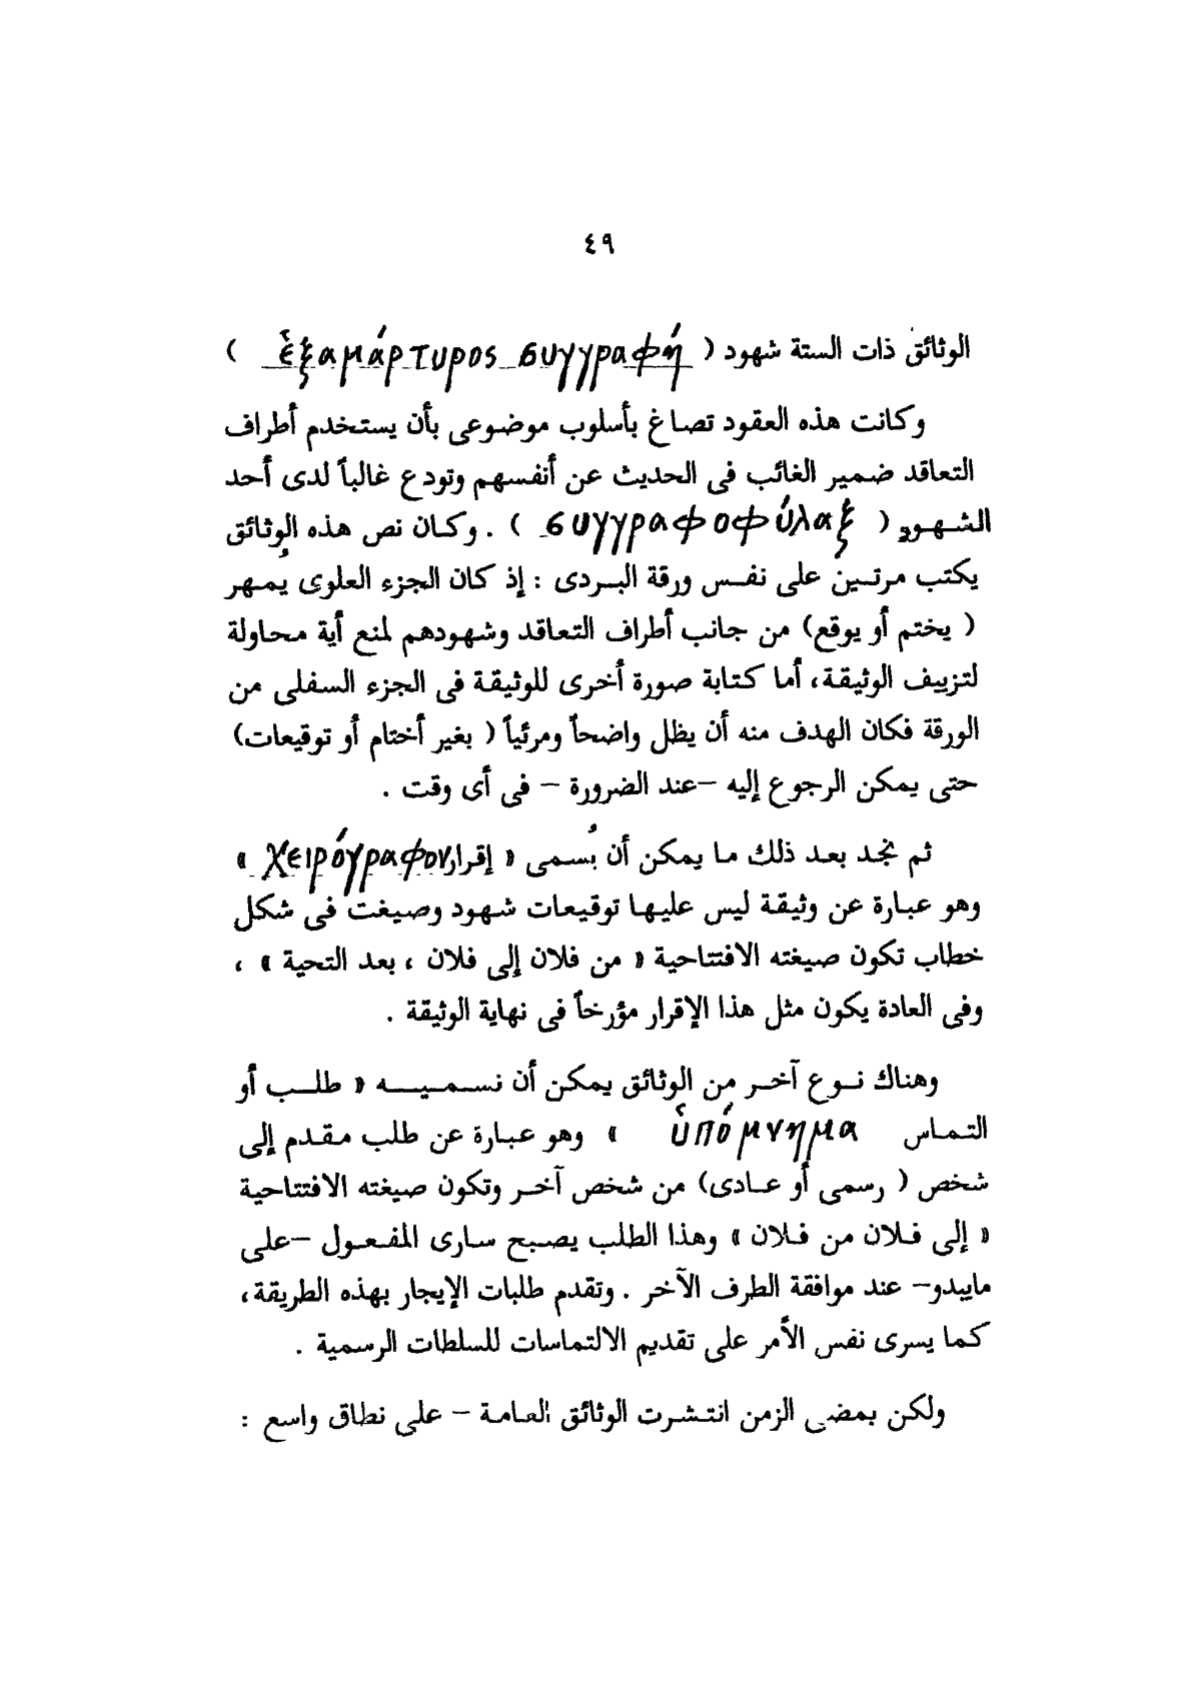 ٤٩
الوثائق ذات الستة شهود ( ἑξαμάρτυρος συγγραφή )
وكانت هذه العقود تصاغ بأسلوب موضوعى بأن يستخدم أطراف
التعاقد ضمير الغائب فى الحديث عن أنفسهم وتودع غالباً لدى أحد
الشهود ( συγγραφοφύλαξ ) . وكان نص هذه الوثائق
يكتب مرتين على نفس ورقة البردى : إذ كان الجزء العلوى يمهر
( يختم أو يوقع) من جانب أطراف التعاقد وشهودهم لمنع أية محاولة
لتزييف الوثيقة، أما كتابة صورة أخرى للوثيقة فى الجزء السفلى من
الورقة فكان الهدف منه أن يظل واضحاً ومرئياً ( بغير أختام أو توقيعات)
حتى يمكن الرجوع إليه –عند الضرورة – فى أى وقت .
ثم نجد بعد ذلك ما يمكن أن يُسمى « إقرار χειρόγραφον »
وهو عبارة عن وثيقة ليس عليها توقيعات شهود وصيغت فى شكل
خطاب تكون صيغته الافتتاحية « من فلان إلى فلان ، بعد التحية » ،
وفى العادة يكون مثل هذا الإقرار مؤرخاً فى نهاية الوثيقة .
وهناك نوع آخر من الوثائق يمكن أن نسميه « طلب أو
التماس ὑπόμνημα » وهو عبارة عن طلب مقدم إلى
شخص ( رسمى أو عادى) من شخص آخر وتكون صيغته الافتتاحية
« إلى فلان من فلان » وهذا الطلب يصبح سارى المفعول –على
مايبدو– عند موافقة الطرف الآخر . وتقدم طلبات الإيجار بهذه الطريقة،
كما يسرى نفس الأمر على تقديم الالتماسات للسلطات الرسمية .
ولكن بمضى الزمن انتشرت الوثائق العامة – على نطاق واسع :